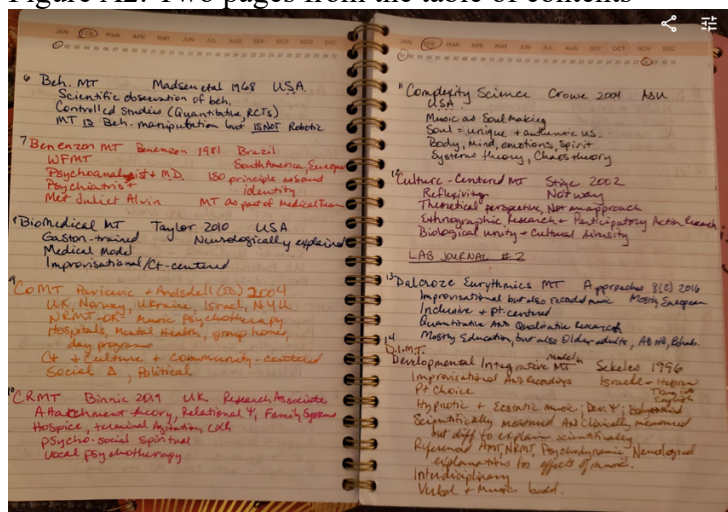 Figure A2: Two pages from the table of contents
JAN FEB MAR APR MAY JUN JUL AUG SEP OCT NOV DEC
6 Beh. MT Madsen et al 1968 USA
Scientific observation of beh.
Controlled Studies (Quantitative, RCTs)
MT IS Beh. manipulation but IS NOT Robotic
7 Benenzon MT Benenzon 1981 Brazil
WFMT South America, Europe
Psychoanalyst + M.D. ISO principle as sound
Psychiatrist identity
Met Juliet Alvin MT as part of Medical Team
8 Biomedical MT Taylor 2010 USA
Gaston-trained Neurologically explained
Medical Model
Improvisational/Ct-centered
9 CoMT Pavlicevic + Ansdell (Eds) 2004
UK, Norway, Ukraine, Israel, NYU
NRMT-OK Music Psychotherapy
Hospitals, Mental Health, group homes,
day programs
Ct + Culture + Community-centered
Social Δ, Political
10 CRMT Binnie 2019 U.K. Research Associate
Attachment theory, Relational Ψ, Family Systems
Hospice, terminal Agitation,
psycho-social spiritual
vocal psychotherapy
JAN FEB MAR APR MAY JUN JUL AUG SEP OCT NOV DEC
11 Complexity Science Crowe 2004 ASU
USA
Music as Soul making
Soul = unique + authentic us.
Body, mind, emotions, spirit
Systems theory, Chaos theory
12 Culture-Centered MT Stige 2002
Reflexivity Norway
Theoretical perspective, Not an approach
Ethnographic Research + Participatory Action Research
Biological unity + cultural diversity
LAB JOURNAL #2
13 Dalcroze Eurythmics MT Approaches 8(2) 2016
Improvisational but also recorded music Mostly European
Inclusive + pt-centered
Quantitative AND Qualitative Research
Mostly Education, but also Older adults, Rehab.
14 D.I.M.T.
Developmental Integrative Model in MT Sekeles 1996
Improvisational AND Recordings Israel - Hebrew
Pt Choice English
Hypnotic + Ecstatic music; Dev. Ψ;
Scientifically measured AND clinically measured
but diff to explain scientifically
Referenced AMT, NRMT, Psychodynamic, Neurological
explanations for effects of music.
Interdisciplinary
Verbal + Music